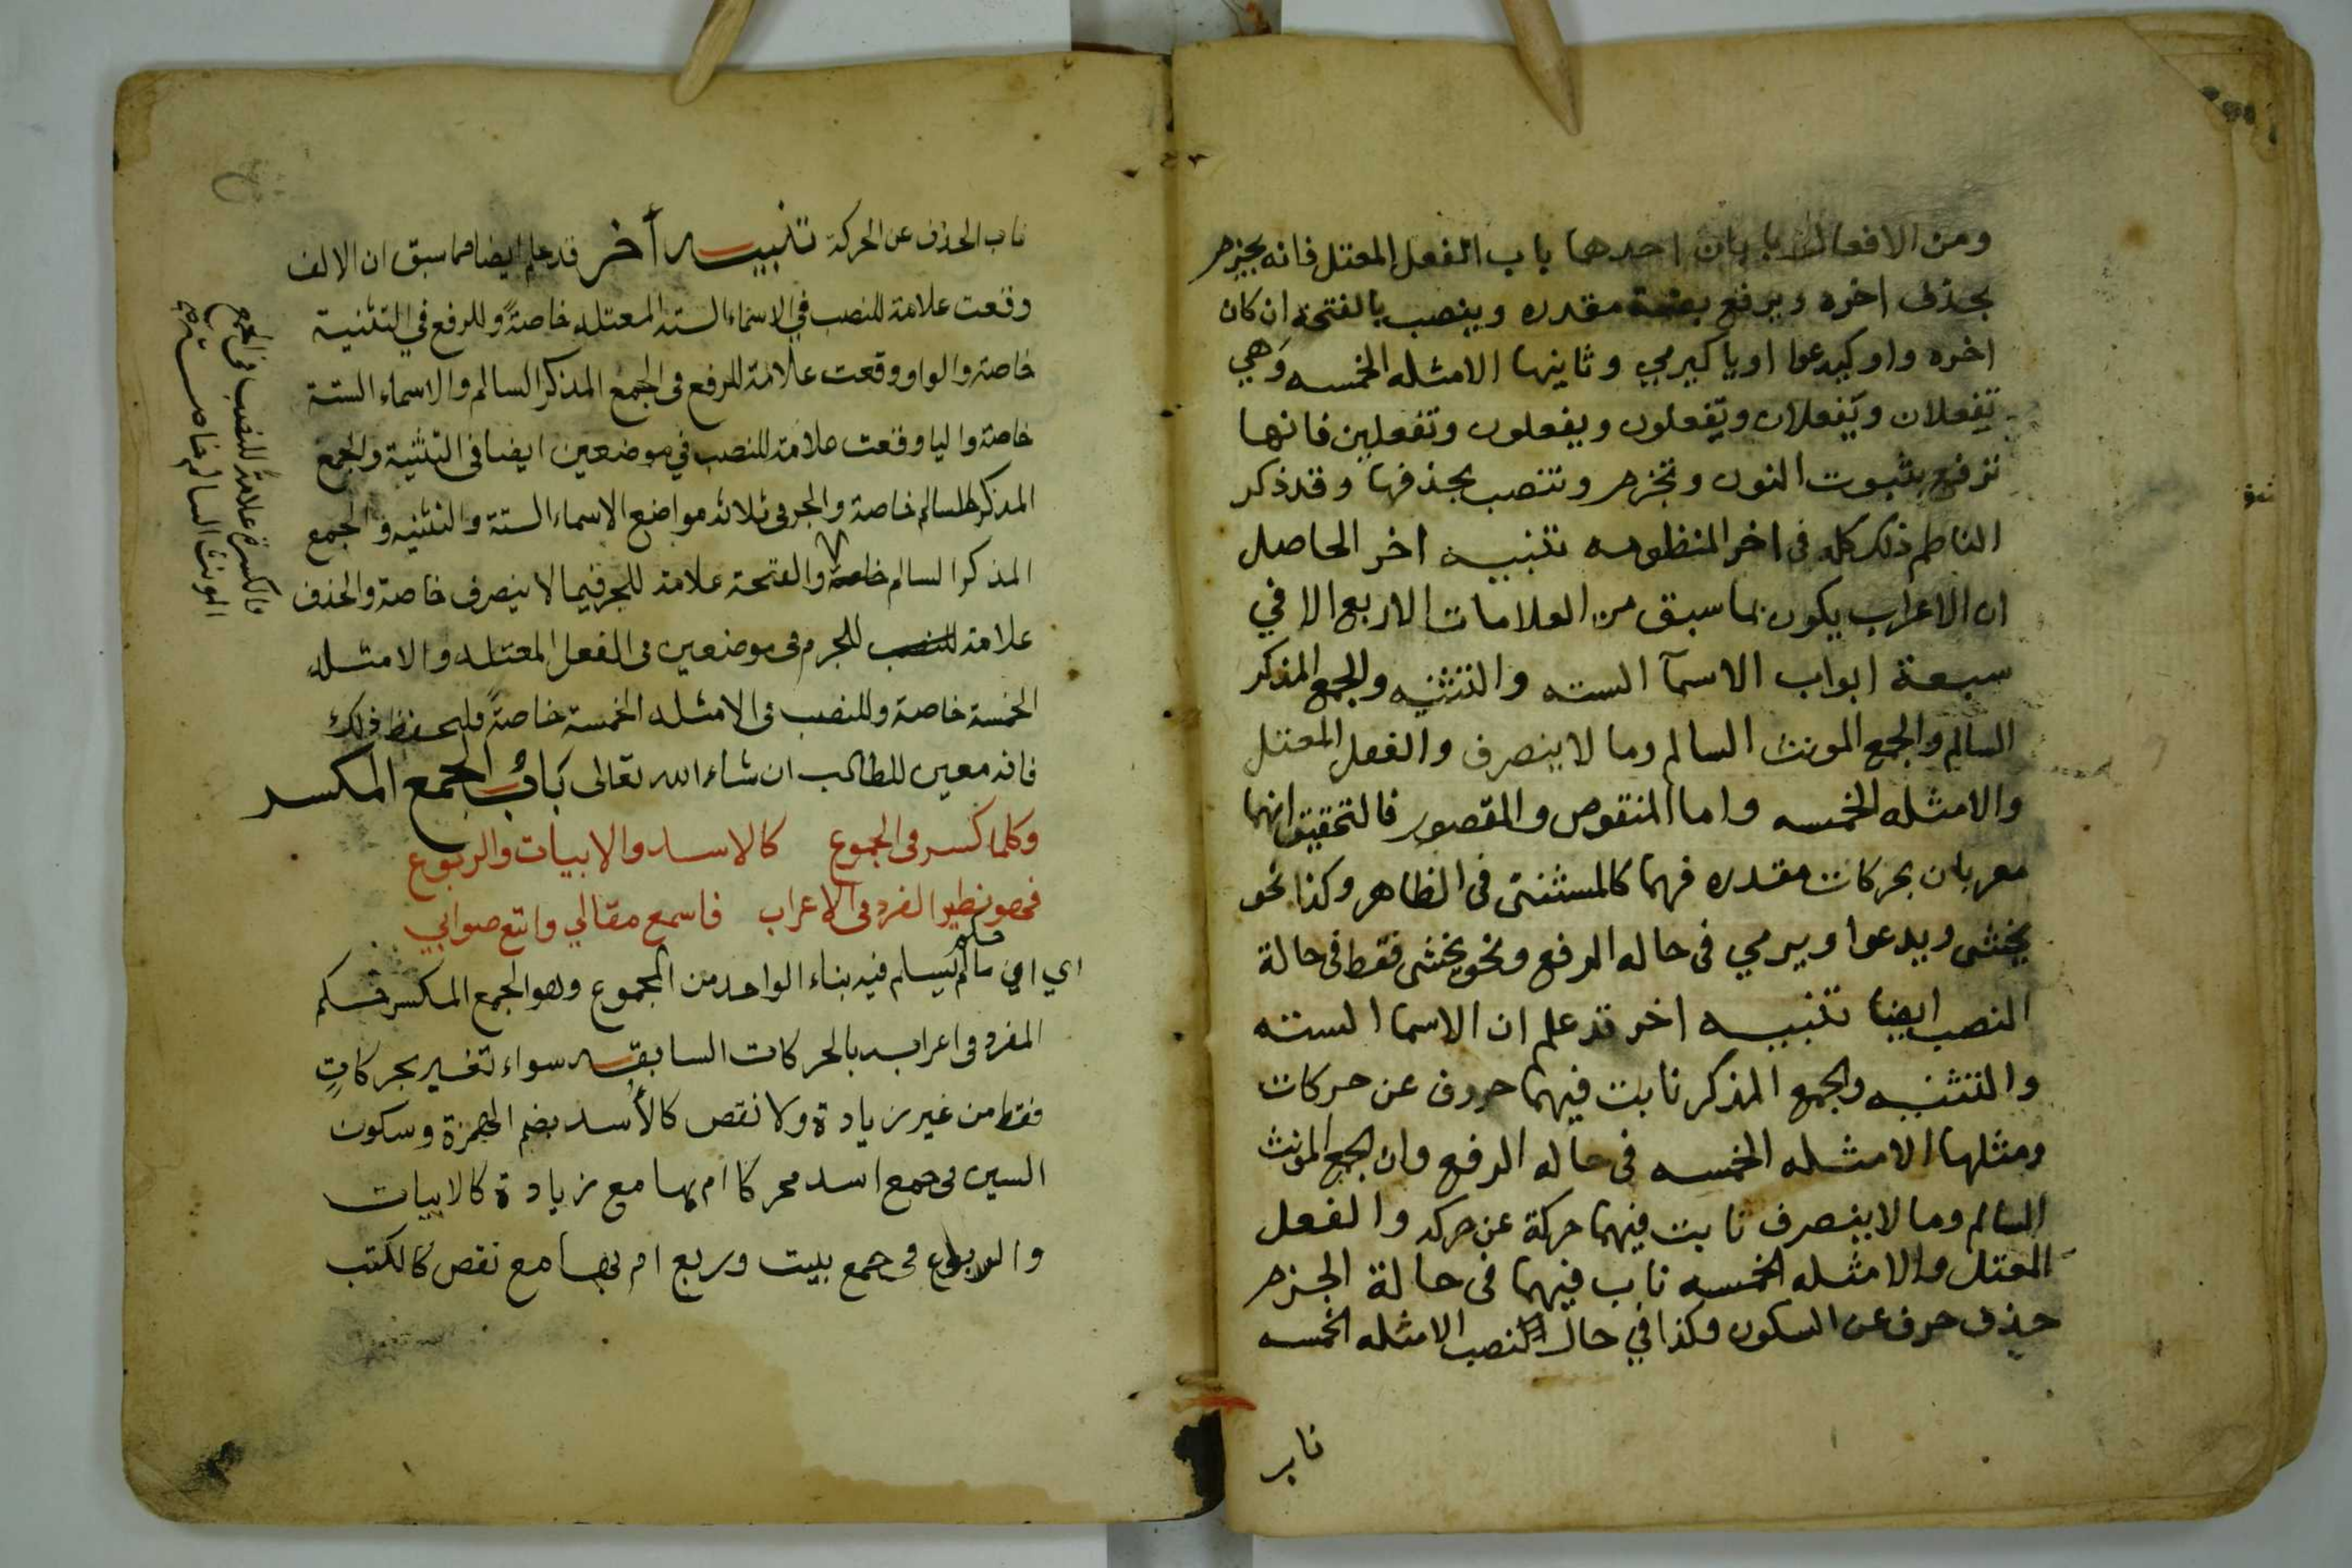 ومن الافعال بابان احدها باب الفعل المعتل فانه يجزم
بحذف اخره ويرفع بضمة مقدره وينصب بالفتحة ان كان
اخره واو كيدعوا او يا كيرمي وثانيها الامثله الخمسه وهي
تفعلان ويفعلان وتفعلون ويفعلون وتفعلين فانها
ترفع بثبوت النون وتجزم وتنصب بحذفها وقد ذكر
الناظم ذلك كله في اخر المنظومه تنبيه اخر الحاصل
ان الاعراب يكون بما سبق من العلامات الاربع الا في
سبعة ابواب الاسمآ السته والتثنيه والجمع المذكر
السالم والجمع المونث السالم وما لا ينصرف والفعل المعتل
والامثله الخمسه واما المنقوص والمقصور فالتحقيق انهما
معربان بحركات مقدره فهما كالمستثنى في الظاهر وكذا نحو
يخشى ويدعوا ويرمي في حاله الرفع ونحو يخشى فقط في حالة
النصب ايضا تنبيه اخر قد علم ان الاسما السته
والتثنيه والجمع المذكر نابت فيهما حروف عن حركات
ومثلها الامثله الخمسه في حاله الرفع وان الجمع المونث
السالم وما لا ينصرف نابت فيهما حركة عن حركه والفعل
المعتل والامثله الخمسه ناب فيهما في حالة الجزم
حذف حرف عن السكون وكذا في حال النصب الامثله الخمسه
ناب
ناب الحذف عن الحركة تنبيه أخر قد علم ايضا مما سبق ان الالف
وقعت علامة للنصب في الاسماء الستة المعتله خاصةً وللرفع في التثنية
خاصة والواو وقعت علامة للرفع في الجمع المذكر السالم والاسماء الستة
خاصة واليا وقعت علامة للنصب في موضعين ايضا في التثنية والجمع
المذكر السالم خاصة والجر في ثلاثة مواضع الاسماء الستة والتثنيه والجمع
المذكر السالم خاصة والفتحة علامة للجر فيما لا ينصرف خاصة والحذف
علامة للنصب للجزم في موضعين في الفعل المعتله والامثله
الخمسة خاصة وللنصب في الامثله الخمسة خاصةً فليحفظ ذلك
فانه معين للطالب ان شاء الله تعالى باب الجمع المكسر
وكلما كسر في الجموع كالاسد والابيات والربوع
فهو نظير الفرد في الاعراب فاسمع مقالي واتبع صوابي
اي ما لم يسلم فيه بناء الواحد من المجموع وهو الجمع المكسر فحكمه حكم
المفرد في اعرابه بالحركات السابقه سواء تغير بحركاتٍ
فقط من غير زيادة ولا نقص كالأُسد بضم الهمزة وسكون
السين في جمع اسد محركا ام بها مع زيادة كالابيات
والربوع في جمع بيت وربع ام بها مع نقص كالكتب
والكسرة علامةً للنصب في الجمع
المونث السالم خاصة صح